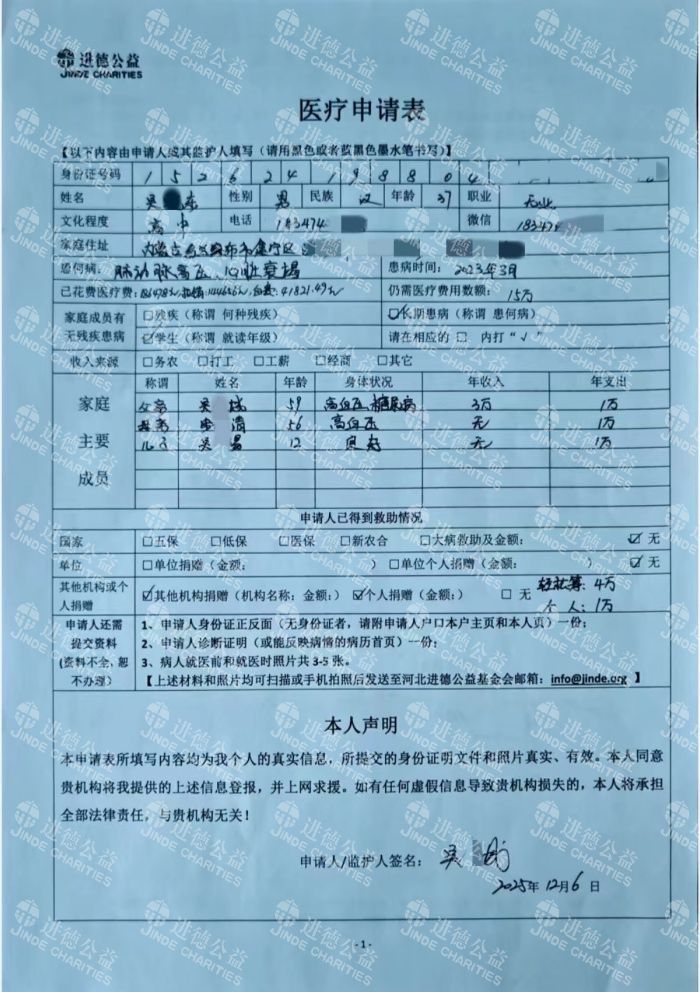 进德公益
JINDE CHARITIES
医疗申请表
【以下内容由申请人或其监护人填写（请用黑色或者蓝黑色墨水笔书写）】
身份证号码 1 5 2 6 2 4 1 9 8 8 0 4
姓名 吴 东 性别 男 民族 汉 年龄 37 职业 无业
文化程度 高中 电话 183474 微信 18347
家庭住址 内蒙古乌兰察布市集宁区
患何病： 肺动脉高压、心脏衰竭 患病时间： 2023年3月
已花费医疗费: 41821.49元 仍需医疗费用数额： 15万
家庭成员有无残疾患病 □残疾（称谓 何种残疾） ☑长期患病（称谓 患何病）
☑学生（称谓 就读年级） 请在相应的 □ 内打“√”
收入来源 □务农 □打工 □工薪 □经商 □其它
家庭主要成员 称谓 姓名 年龄 身体状况 年收入 年支出
父亲 吴 59 高血压 糖尿病 3万 1万
母亲 清 56 高血压 无 1万
儿子 吴 易 12 良好 无 1万
申请人已得到救助情况
国家 □五保 □低保 □医保 □新农合 □大病救助及金额： ☑ 无
单位 □单位捐赠（金额： ） □单位个人捐赠（金额： ） ☑ 无
其他机构或个人捐赠 ☑其他机构捐赠（机构名称：金额：） ☑个人捐赠（金额：） □ 无 轻松筹：4万
个 人：1万
申请人还需提交资料（资料不全，恕不办理） 1、申请人身份证正反面（无身份证者，请附申请人户口本户主页和本人页）一份；
2、申请人诊断证明（或能反映病情的病历首页）一份；
3、病人就医前和就医时照片共 3-5 张。
【上述材料和照片均可扫描或手机拍照后发送至河北进德公益基金会邮箱：info@jinde.org 】
本人声明
本申请表所填写内容均为我个人的真实信息，所提交的身份证明文件和照片真实、有效。本人同意
贵机构将我提供的上述信息登报，并上网求援。如有任何虚假信息导致贵机构损失的，本人将承担
全部法律责任，与贵机构无关！
申请人/监护人签名： 吴
2025年 12月 6 日
- 1 -